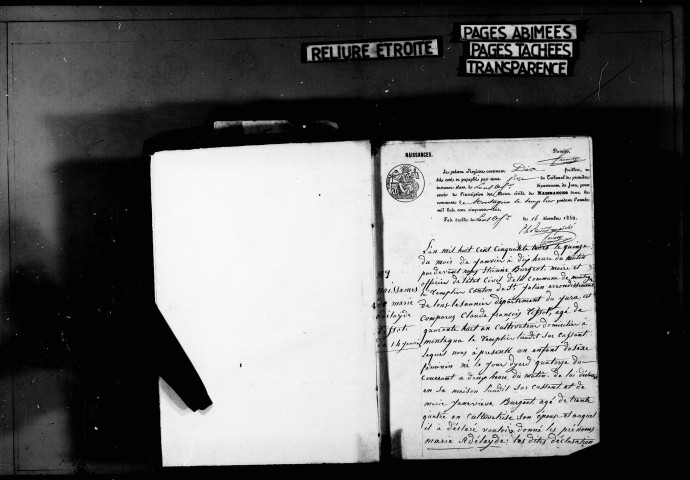 RELIURE ÉTROITE
PAGES ABIMÉES
PAGES TACHÉES
TRANSPARENCE
NAISSANCES.
Le présent Registre contenant Dix feuillets, a
été coté et paraphé par nous du Tribunal de première
instance séant de département du Jura, pour
servir à l'inscription des Actes civils de NAISSANCES dans la
commune de Montagna le templier pendant l'année
mil huit cent cinquante-trois.
Fait double à le 16 décembre 1852.
L'an mil huit cent cinquante trois le quinze
du mois de janvier à dix heure du matin
par devant nous Étienne Burgest, maire et
officier de l'état Civil de la commune de montagna
le templier Canton de St julien arrondissement
de lons-le-saunier département du jura, est
comparus Claude françois tissot, agé de
quarante huit an cultivateur domicilier à
montagna le templier laudit sur cassant
lequel nous à présenté un enfant de sexe
féminin né le jour dyerd quatorze du
courant a deux heure du matin de lui déclarant
en sa maison laudit sur cassant et de
marie jeneviève Burgest, agé de trente
quatre an cultivatrice son épouse et auquel
il à déclaré vouloir donné les prénoms
marie Adélayde; les dites déclaration
N° 1
naissance
de marie
adélayde
tissot
du 14 janvier